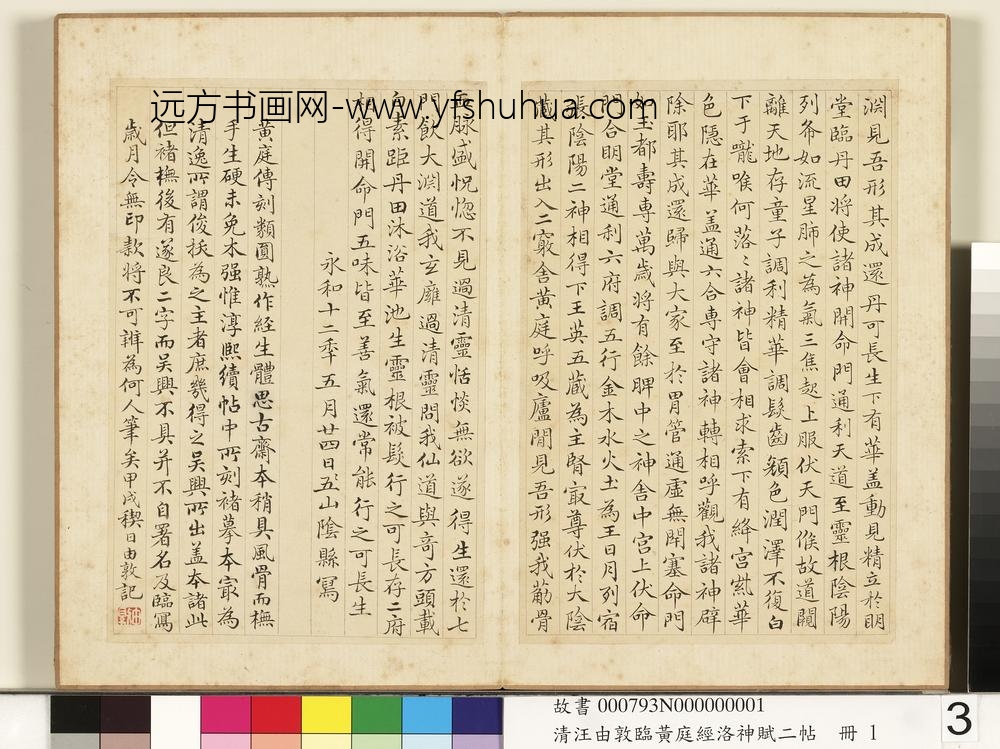 淵見吾形其成還丹可長生下有華盖動見精立於明
堂臨丹田將使諸神開命門通利天道至靈根陰陽
列布如流星肺之為氣三焦起上服伏天門候故道闚
離天地存童子調利精華調髮齒顏色潤澤不復白
下于嚨喉何落〻諸神皆會相求索下有絳宮紫華
色隱在華盖通六合専守諸神轉相呼觀我諸神辟
除耶其成還歸與大家至於胃管通虛無閇塞命門
如玉都壽専萬歳將有餘脾中之神舎中宮上伏命
門合明堂通利六府調五行金木水火土為王日月列宿
張陰陽二神相得下王英五蔵為主腎㝡尊伏於大陰
蔵其形出入二竅舎黃庭呼吸廬間見吾形强我觔骨
血脉盛怳惚不見過清靈恬惔無欲遂得生還於七
門飲大淵道我玄廱過清靈問我仙道與奇方頭載
白素距丹田沐浴華池生靈根被髮行之可長存二府
相得開命門五味皆至善氣還常能行之可長生
永和十二秊五月廿四日五山陰縣寫
黃庭傳刻類圓熟作経生體思古齋本稍具風骨而橅
手生硬未免木强惟淳熙續帖中所刻褚摹本㝡為
清逸所謂俊抜為之主者庶幾得之吴興所出盖本諸此
但褚橅後有遂良二字而吴興不具并不自署名及臨寫
歳月令無印款將不可辨為何人筆矣甲戍稧日由敦記
远方书画网-www.yfshuhua.com
故書 000793N000000001
清汪由敦臨黃庭經洛神賦二帖 冊 1
3